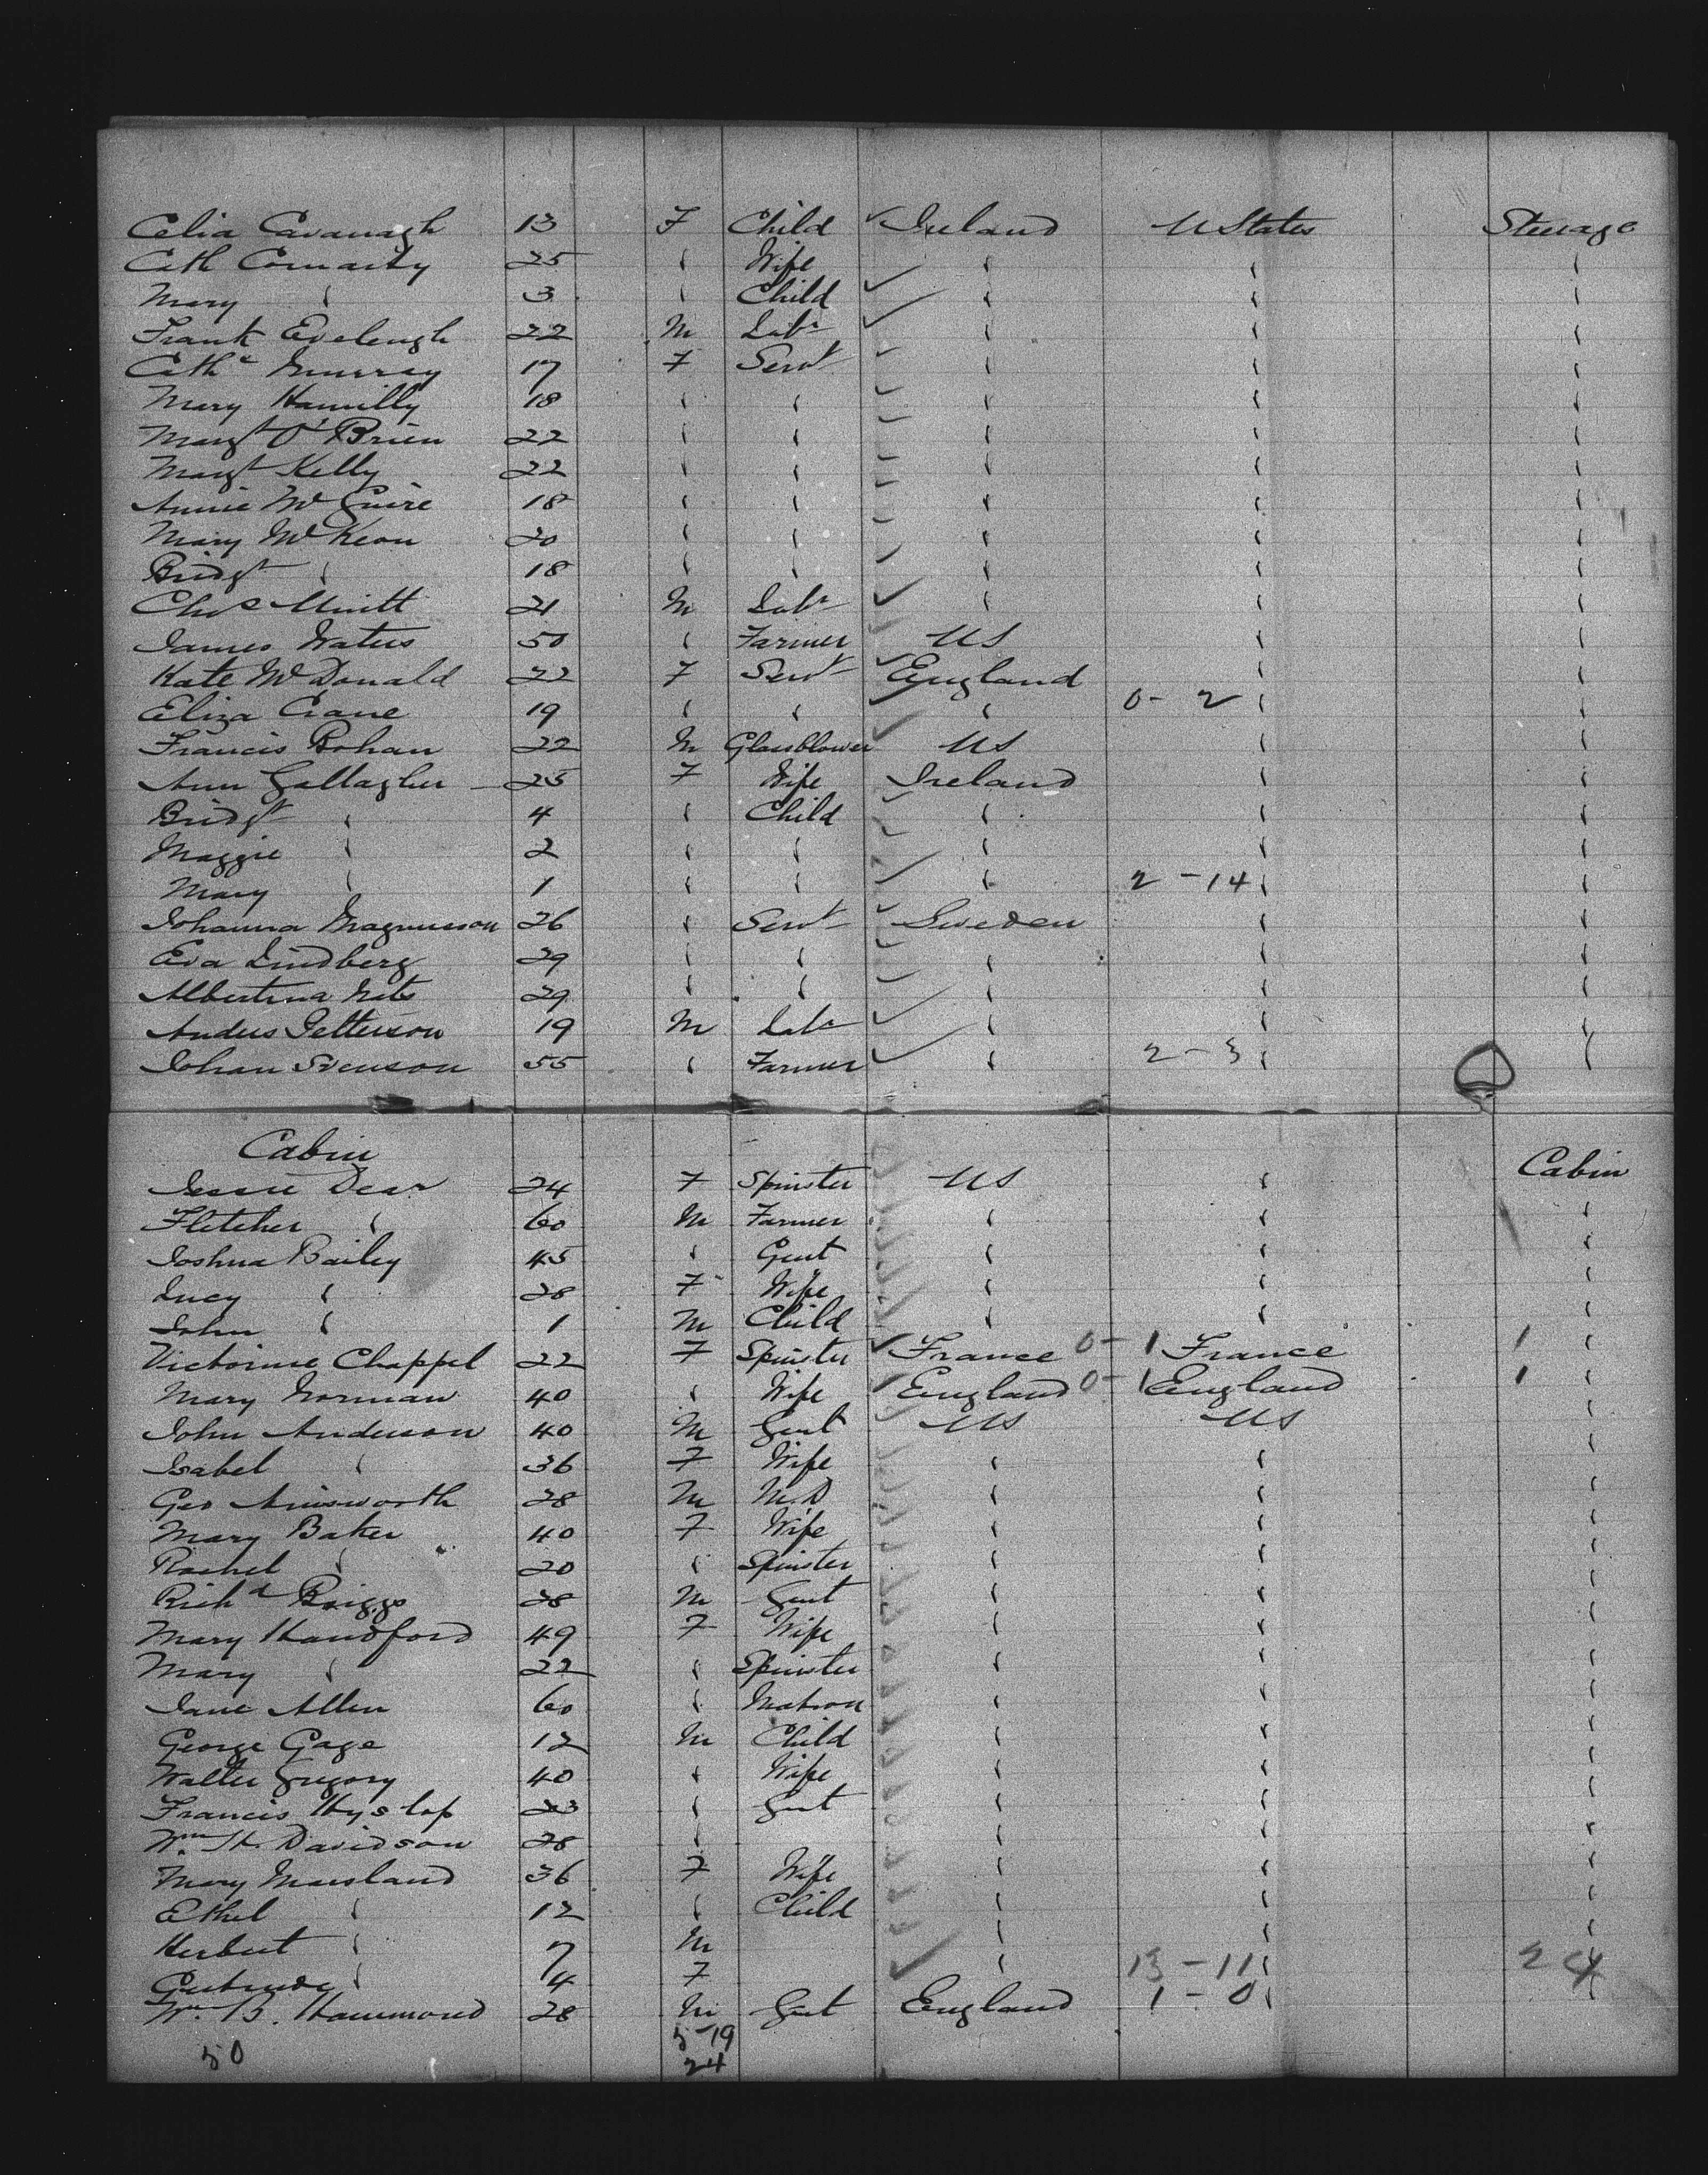 Celia Cavanagh 13 F Child ✓ Ireland U States Steerage
Cath 25 " Wife " " "
Mary " 3 " Child ✓ " " "
Frank Eveleugh 22 M Labr ✓ " " "
Cathe Murray 17 F Servt " " "
Mary Hamilly 18 " " " " "
Margt O'Brien 22 " " " " "
Margt Kelly 22 " " " " "
Annie McGuire 18 " " " " "
Mary McKeon 20 " " " " "
Bridgt " 18 " " " " "
Chas 21 M Labr ✓ " " "
James Waters 50 " Farmer US " "
Kate McDonald 22 F Servt England " "
Eliza Crane 19 " " " 0 - 2 " "
Francis Bohan 22 M Glassblower US " "
Ann Gallagher 25 F Wife Ireland " "
Bridgt " 4 " Child " " "
Maggie " 2 " " " " "
Mary " 1 " " ✓ " 2 - 14 " "
Johanna Magnusson 26 " Servt Sweden " "
Eva Lindberg 29 " " " " "
Albertina 29 " " " " "
Anders Petterson 19 M Labr ✓ " " "
Johan Svenson 55 " Farmer ✓ " 2 - 3 " "
Cabin
Jessie Dear 24 F Spinster US " Cabin
Fletcher " 60 M Farmer " " "
Joshua Bailey 45 " Gent " " "
Lucy " 28 F Wife " " "
John " 1 M Child " " "
Victorine Chappel 22 F Spinster ✓ France 0 - 1 France 1 "
Mary Norman 40 " Wife England 0 - 1 England 1 "
John Anderson 40 M Gent US US "
Isabel " 36 F Wife " " "
Geo Ainsworth 28 M M.D " " "
Mary Baker 40 F Wife " " "
Rachel " 20 " Spinster " " "
Richd Briggs 28 M Gent " " "
Mary Handford 49 F Wife " " "
Mary " 22 " Spinster " " "
Jane Allen 60 " Matron " " "
George Gage 12 M Child " " "
Walter Gregory 40 " Wife " " "
Francis Hyslop 23 " Gent " " "
Wm H. Davidson 28 " " " "
Mary Marsland 36 F Wife " " "
Ethel " 12 " Child " " "
Herbert " 7 M " " "
Gertrude " 4 F ✓ " 13 - 11 " 24 "
Wm B. Hammond 28 M Gent England 1 - 0 " "
50 5-19
24